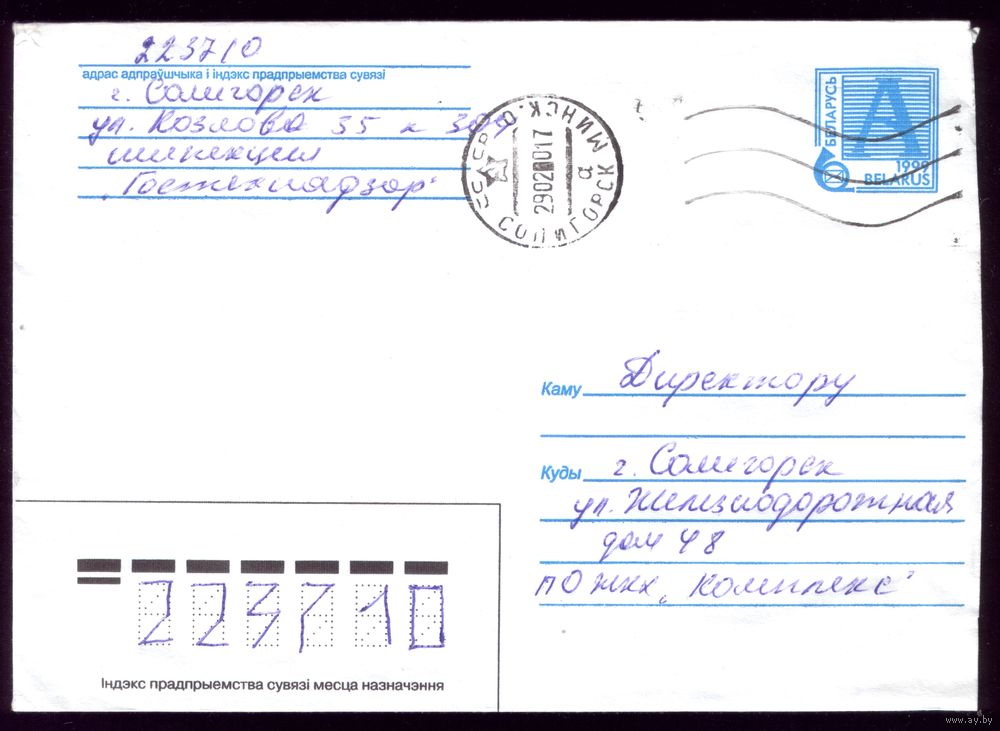 223710
адрас адпраўшчыка і індэкс прадпрыемства сувязі
г. Солигорск
ул. Козлова 35 к
инспекция
"Гостехнадзор"
БССР МИНСК. О.
СОЛИГОРСК
29020017
а
БЕЛАРУСЬ
А
1999
BELARUS
Каму Директору
Куды г. Солигорск
ул. Железнодорожная
дом 48
ПО ЖКХ "Комплекс"
223710
Індэкс прадпрыемства сувязі месца назначэння
www.ay.by